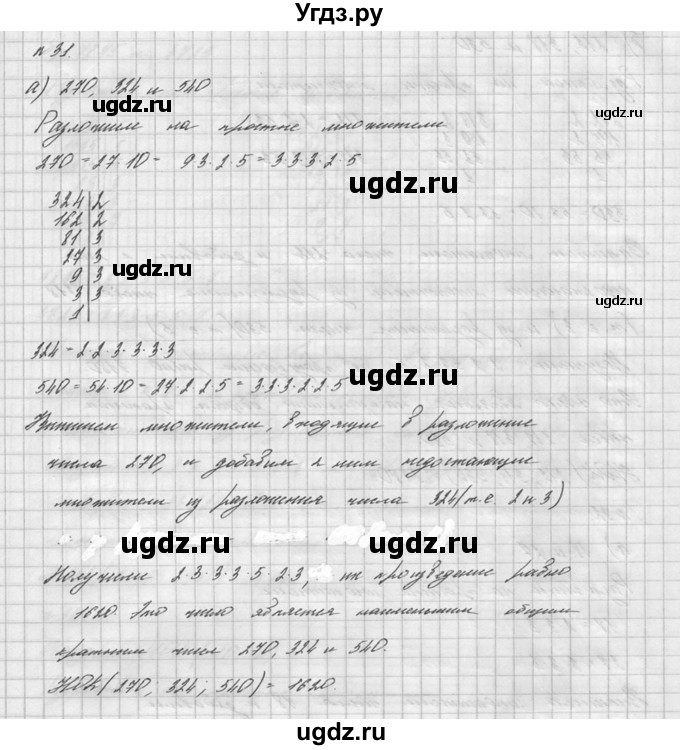 Угдз.ру
n 31.
а) 270, 324 и 540
ugdz.ru
ugdz.ru
Разложим на простые множители
270 = 27·10 = 9·3·2·5 = 3·3·3·2·5
ugdz.ru
324|2
162|2
81|3
27|3
9|3
ugdz.ru
3|3
1|
ugdz.ru
324 = 2·2·3·3·3·3
540 = 54·10 = 27·2·2·5 = 3·3·3·2·2·5
ugdz.ru
Выпишем множители, входящие в разложение
числа 270, и добавим к ним недостающие
ugdz.ru
множители из разложения числа 324 (т.е. 2 и 3)
ugdz.ru
ugdz.ru
Получим 2·3·3·3·5·2·3, их произведение равно
1620. Это число является наименьшим общим
ugdz.ru
кратным чисел 270, 324 и 540.
НОК(270; 324; 540) = 1620.
ugdz.ru
ugdz.ru